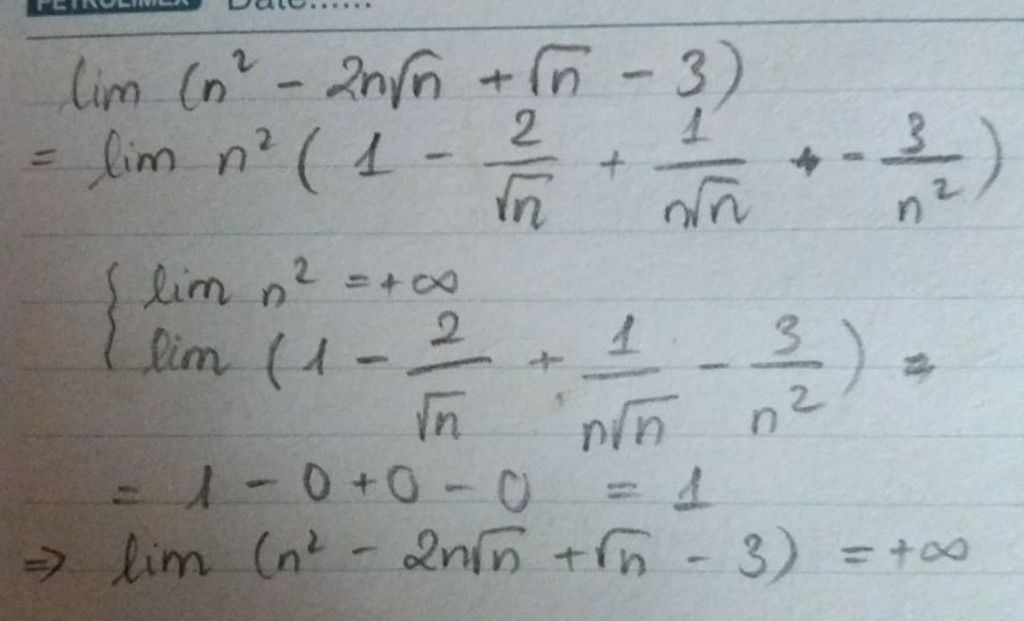 PETROLIMEX Date......
lim (n² - 2n√n + √n - 3)
= lim n² ( 1 - 2/√n + 1/(n√n) - 3/n² )
{ lim n² = +∞
lim ( 1 - 2/√n + 1/(n√n) - 3/n² ) =
= 1 - 0 + 0 - 0 = 1
⇒ lim (n² - 2n√n + √n - 3) = +∞